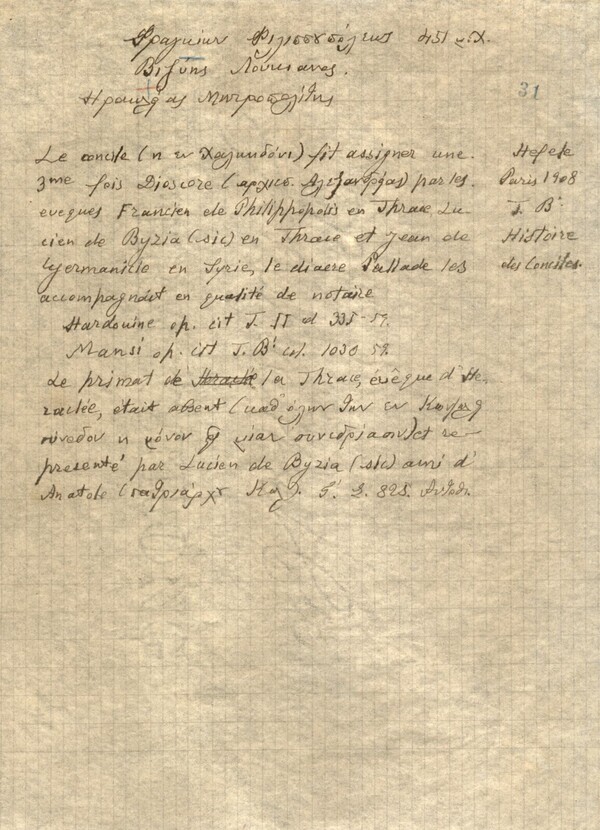 Φραγκίων Φιλιππουπόλεως 451 μ.Χ.
Βιζύης Λουκιανος.
Ηρακλείας Μητροπολίτης
31
Le concile (η εν Χαλκηδόνι) fit assigner une
3me fois Dioscore (αρχιεπ. Αλεξανδρείας) par les
eveques Francien de Philippopolis en Thrace, Lu-
cien de Byzia (sic) en Thrace et Jean de
Germanicie en Syrie, le diacre Pallade les
accompagnait en qualité de notaire
Hardouine op. cit T. II d 335-59.
Mansi op. cit T. Β' col. 1030 59.
Le primat de Thracie la Thrace, évêque d'He-
raclée, était absent (καθ' όλην την εν
σύνοδον η μόνον μίαν συνεδρίασιν) et re-
presenté par Lucien de Byzia (sic) ami d'
Anatole (πατριάρχου Κπλ). 825.
Hefele
Paris 1908
T. Β'
Histoire
des Conciles.